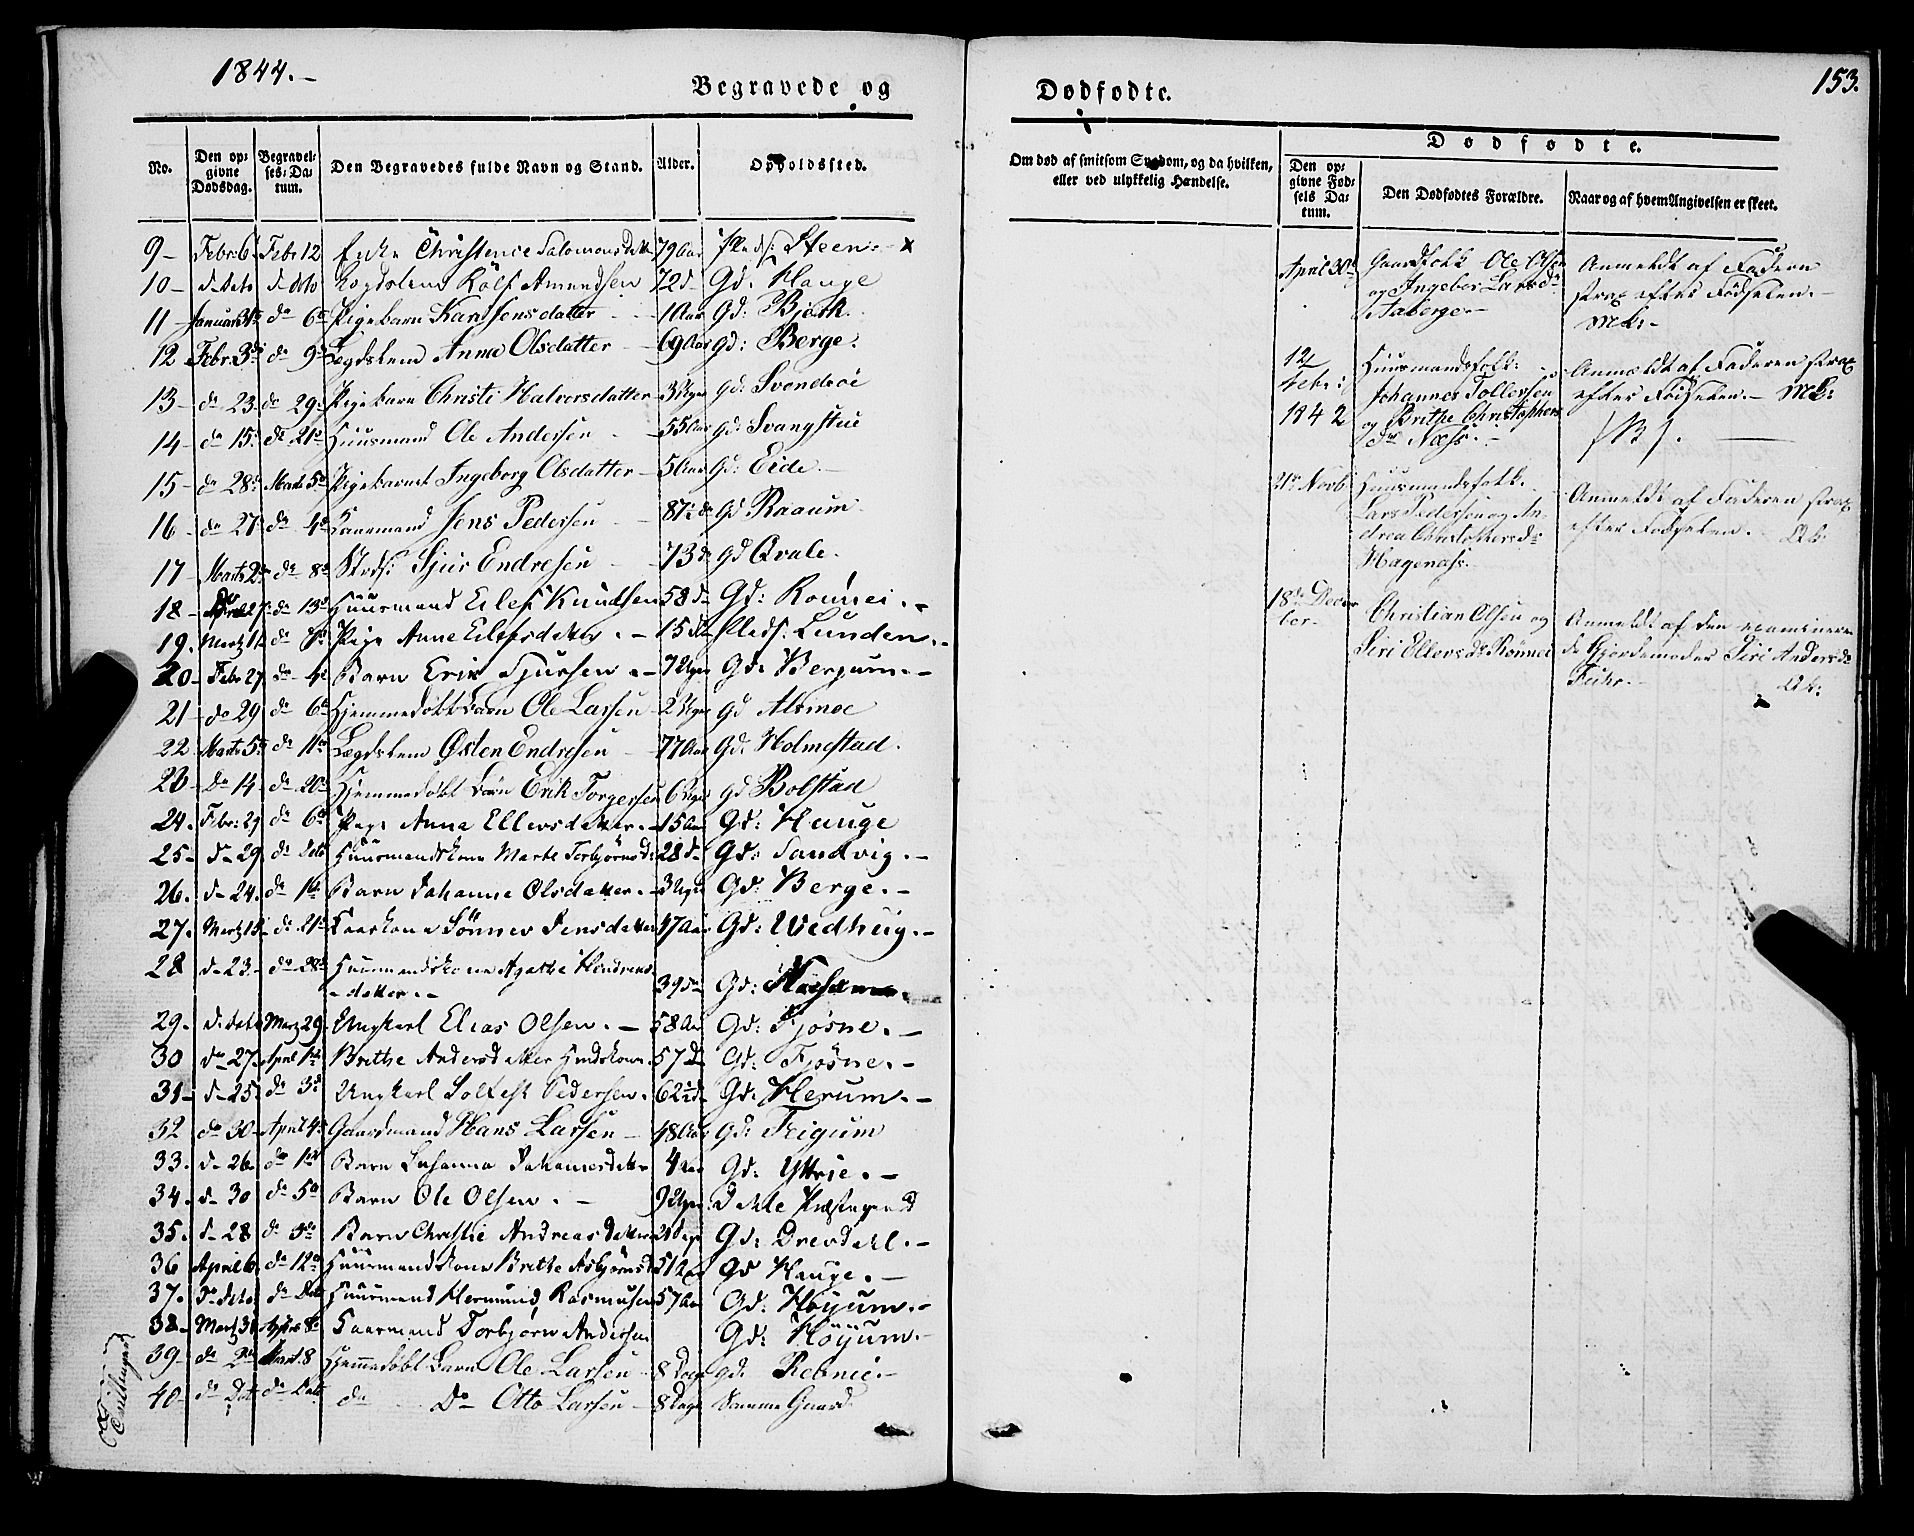 1844.-
Begravede og
No.
Den op=
givne
Dødsdag.
Begravel=
ses=Da=
tum.
Den Begravedes fulde Navn og Stand.
Alder.
Opholdssted.
9- Febr: 6 Febr 12 Enke Christence Salomonsdatter 79 Aar Plads: Steen.- x
10- d- deto d- deto Legdslem Rolf Amundsen 72 d- Gd: Hauge
11- Januar 31 da 6 Pigebarn Kari Jensdatter - 1 Aar Gd: Bjørk.
12 Febr. 3 da 9 Legdslem Anna Olsdatter - 69 Aar Gd: Berge.
13- da 23. da 29. Pigebarn Christi Halvorsdatter 3 Uger gd: Svondrøi
14- da 15. da 21 Huusmand Ole Andersen - 55 Aar gd: Svangstue
15- da 28 Marts 5 Pigebarnet Ingeborg Olsdatter - 5 Aar Gd: Eide.-
16- da 27. da 4 Kaaremand Jens Pedersen 87½ da Gd Raaum.
17- Marts 2 da 8 Sjur Endresen 73 d Gd Qvale.
18- 27. da 13 Huusmand Eilef Knudsen 58 d Gd: Rønnei.-
19. Martz 1 da 8 Pige Anne Eilefsdatter.- 15 d Plads: Lunden.-
20- Febr 27 da 4 Barn Erik Sjursen.- 7 Uger Gd: Bergum.-
21- da 29 da 6 Hjemmedøbt Barn Ole Larsen 2 Uger Gd Alsmoe
22. Marts 5 da 11 Lægdslem Østen Endresen - 77 Aar Gd: Holmestad.
23- Da 14 da 20 Hjemmedøbt Barn Erik Torgersen 6 Uger gd Bolstad
24. Febr: 29 da 6 Pige Anna Ellersdatter.- 15 Aar Gd: Hauge
25- d- 29 da Deto Huusmandskone Marte Torbjørnsd: 28 d- Gd: Sandvig.-
26. d- 24. da 1 Barn Johanne Olsdatter.- 3 Uger Gd: Berge.-
27. Martz 15 da 21 Kaarkone Sønnev Jensdatter 47 Aar Gd: Wedhug.-
28 d- 23. da 28 Huusmandskone Agathe Hendriks
- datter.- 39 da Gd:
29. d. deto Martz 29. Ungkarl Elias Olsen.- 58 Aar Gd: Fjøsne.-
30 da 27. April 1 Brithe Andersdatter 57 d Gd: Fjøsne.-
31- d- 25. da 3 Ungkarl Pedersen. 62½ d Gd: Herum.-
32 da 30- April 4 Gaardmand Hans Larsen - 48 Aar gd: Feigum
33. d- 26 da 1 Barn Susanna Johannesdatter 4 Aar Gd: Yttrie.-
34. d- 30 da 5 Barn Ole Olsen.- 9 Uger Dette Præstegjeld
35. d- 28 da 3 Barn Christie Andreasdatter 2 Gd: Drevdahl.-
36 April 6 da 12 Huusmandskone Brithe Asbjørnsd 51 Gd Hauge.-
37. Da deto da Deto Huusmand Hermund Rasmusen 57 Aar Gd: Høyum.-
38- Martz 31 April 8 Kaarmand Torbjørn Andersen Gd: Høyum.-
39- da April 8 Hjemmedøbt Barn Ole Larsen 8 Dage gd: Rebnie.-
40- da Deto da Deto da Do Otto Larsen - 8 Dage Samme Gaard.
Tvillinger
153.
Dødfødte.
Om død af smitsom Sygdom, og da hvilken,
eller ved ulykkelig Hændelse.
Dødfødte.
Den op=
givne Fød=
sels Da=
tum.
Den Dødfødtes Forældre.
Naar og af hvem Angivelsen er skeet.
April 30 Gaardfolk Ole Olsen
og Ingebor Larsd
Aaberge.-
Anmeldt af Faderen
strax efter Fødselen.-
Mk:-
12
Febr:
1842
Huusmandsfolk:
Johannes Tollersen
og Brithe Christophers
Dr Næss.-
Anmældt af Faderen strax
efter Fødselen.- Mk:
21 Novb Huusmandsfolk.
Lars Pedersen og An
drea Christophersd
Hagenæss.
Anmeldt af Faderen strax
efter Fødselen.-
18 Decem
ber- Christian Olsen og
Siri Ellersd Rønnei
Anmeldt af den examineren
de Gjordemoder Siri Andersd